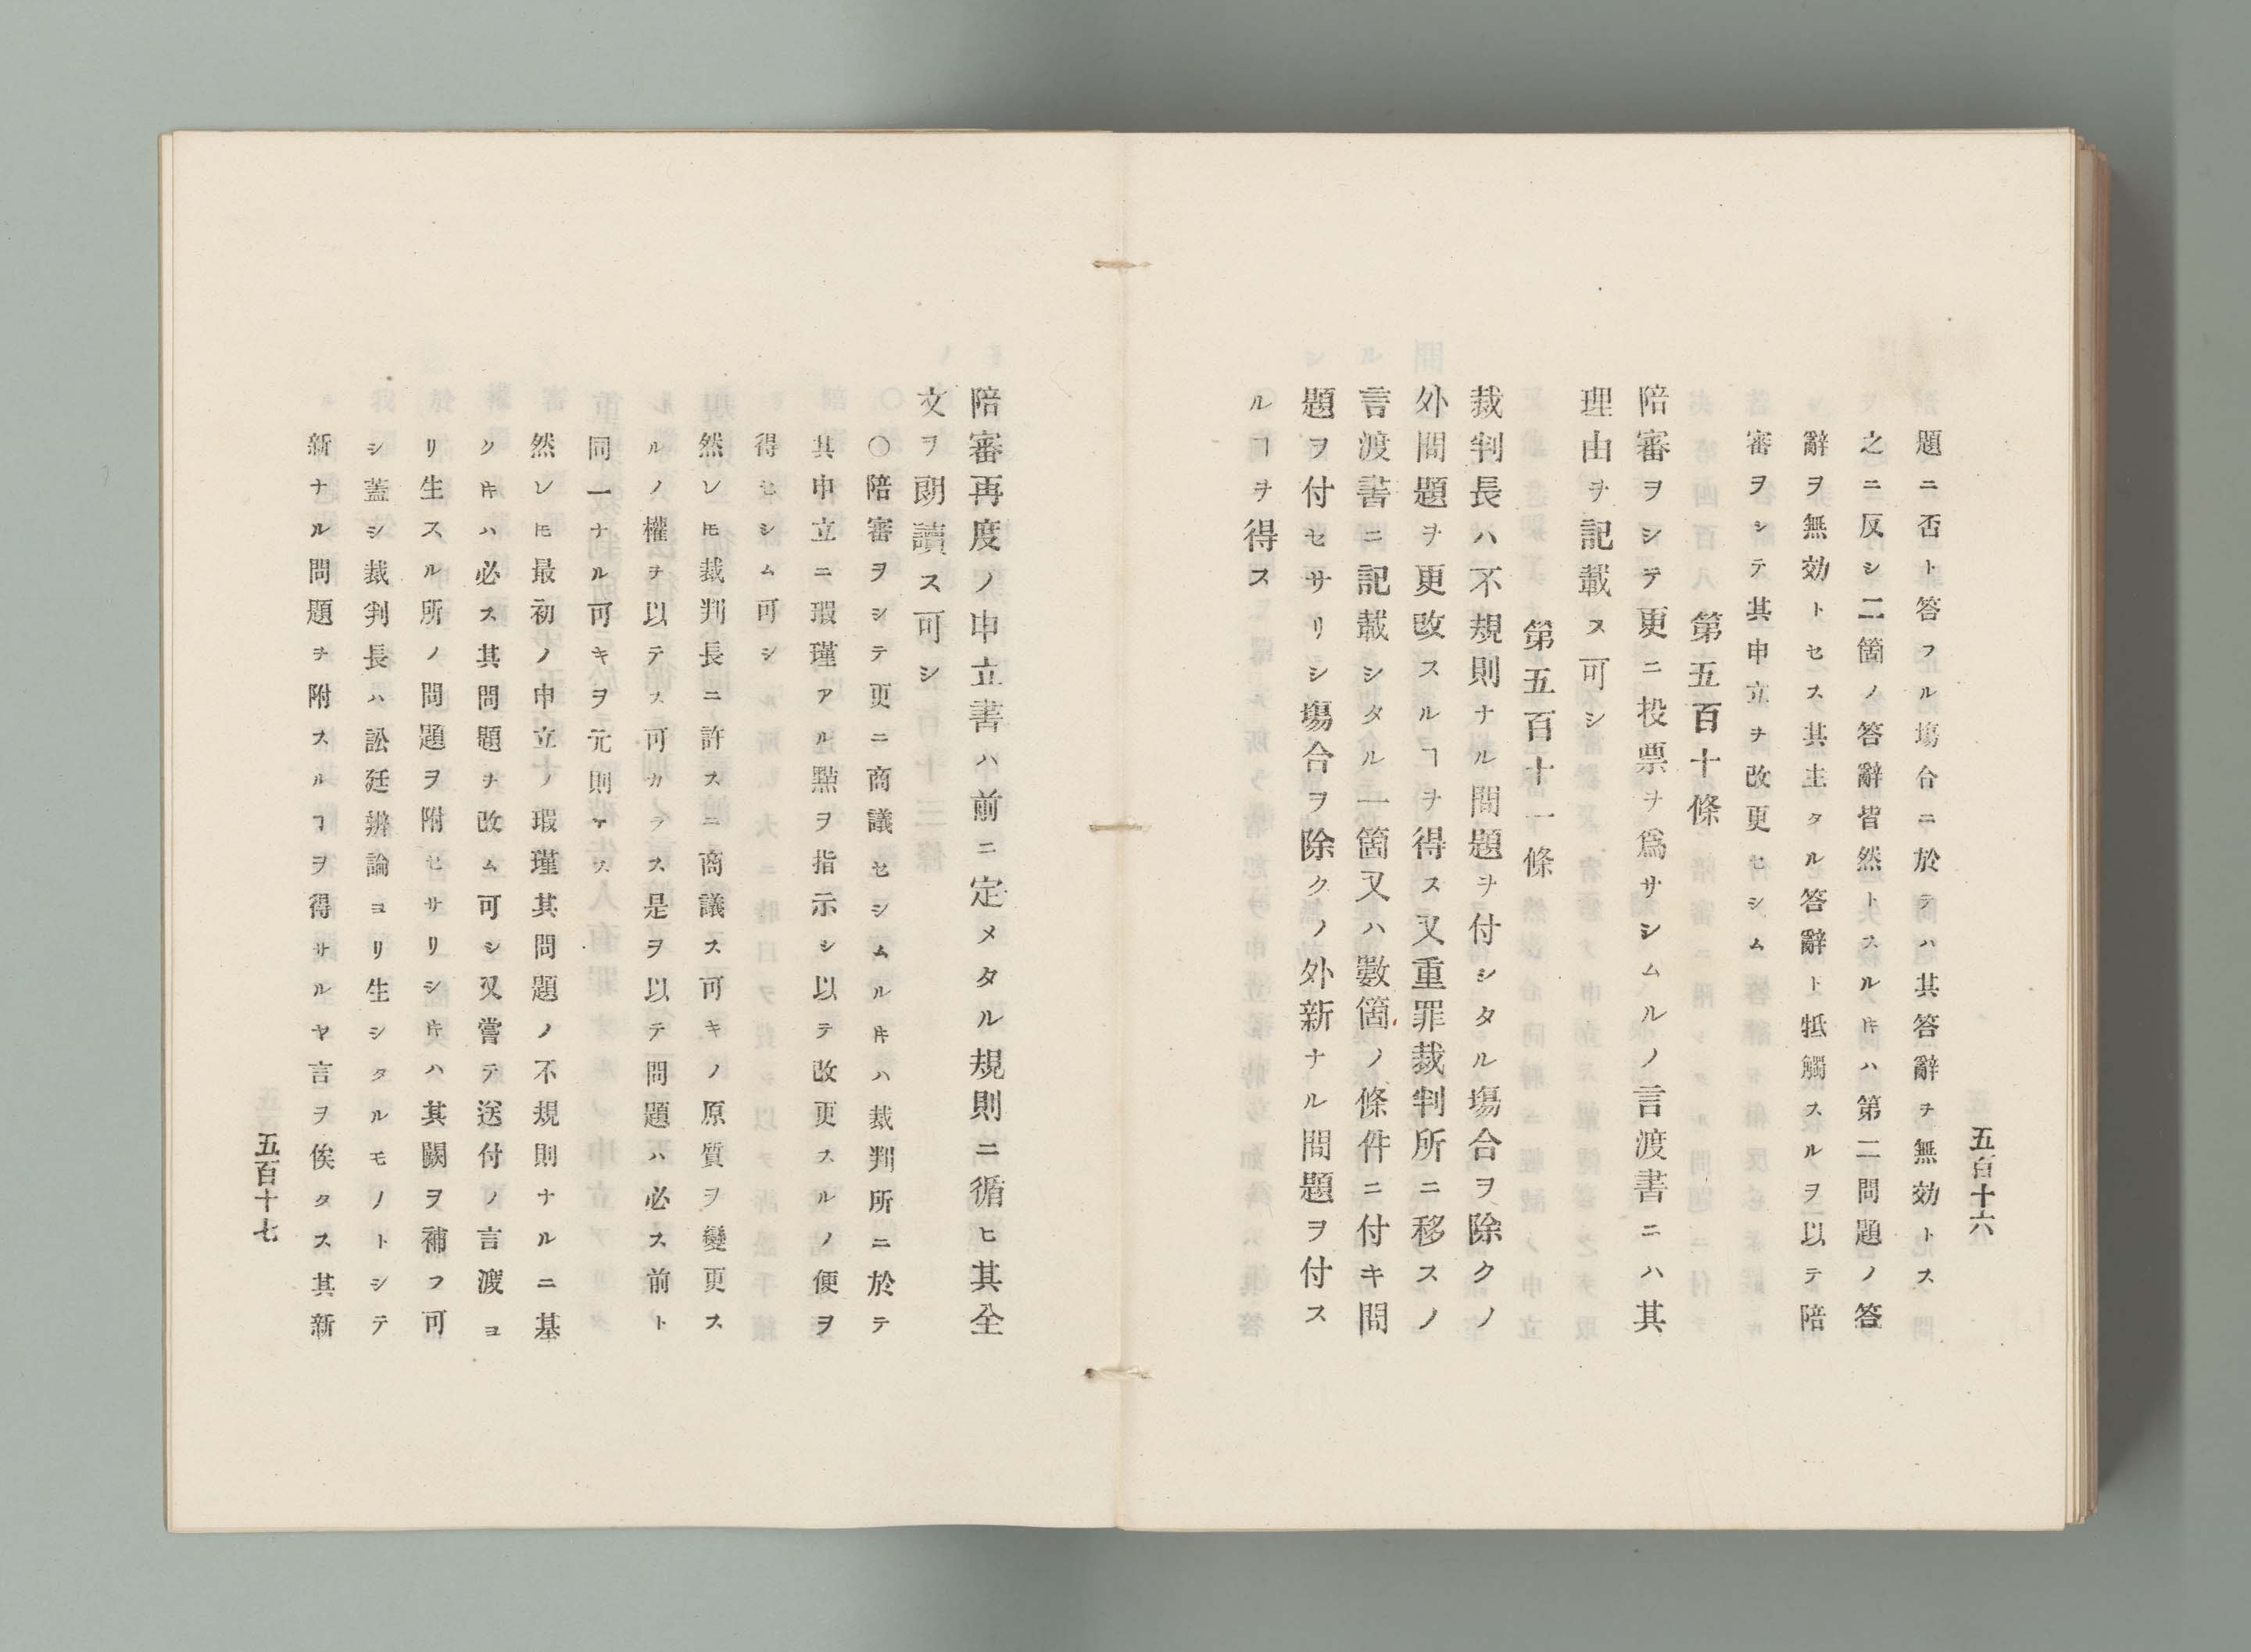 五百十六
題ニ否ト答フル塲合ニ於テハ其答辭ヲ無効トス
之ニ反シ二箇ノ答辭皆然トスル𪜈ハ第二問題ノ答
辭ヲ無効トセス其主タル答辭ト牴觸スルヲ以テ陪
審ヲシテ其申立ヲ改更セシム
第五百十條
陪審ヲシテ更ニ投票ヲ爲サシムルノ言渡書ニハ其
理由ヲ記載ス可シ
第五百十一條
裁判長ハ不規則ナル問題ヲ付シタル塲合ヲ除クノ
外問題ヲ更改スルヿヲ得ス又重罪裁判所ニ移スノ
言渡書ニ記載シタル一箇又ハ數箇ノ條件ニ付キ問
題ヲ付セサリシ塲合ヲ除クノ外新ナル問題ヲ付ス
ルヿヲ得ス
陪審再度ノ申立書ハ前ニ定メタル規則ニ循ヒ其全
文ヲ朗讀ス可シ
〇陪審ヲシテ更ニ商議セシムル𪜈ハ裁判所ニ於テ
其申立ニ瑕瑾アル點ヲ指示シ以テ改更スルノ便ヲ
得セシム可シ
然レ𪜈裁判長ニ許スニ商議ス可キノ原質ヲ變更ス
ルノ權ヲ以テス可カラス是ヲ以テ問題ハ必ス前ト
同一ナル可キヲ元則トス
然レ𪜈最初ノ申立ノ瑕瑾其問題ノ不規則ナルニ基
ク𪜈ハ必ス其問題ヲ改ム可シ又嘗テ送付ノ言渡ヨ
リ生スル所ノ問題ヲ附セサリシ𪜈ハ其闕ヲ補フ可
シ蓋シ裁判長ハ訟廷辨論ヨリ生シタルモノトシテ
新ナル問題ヲ附スルヿヲ得サルヤ言ヲ俟タス其新
五百十七